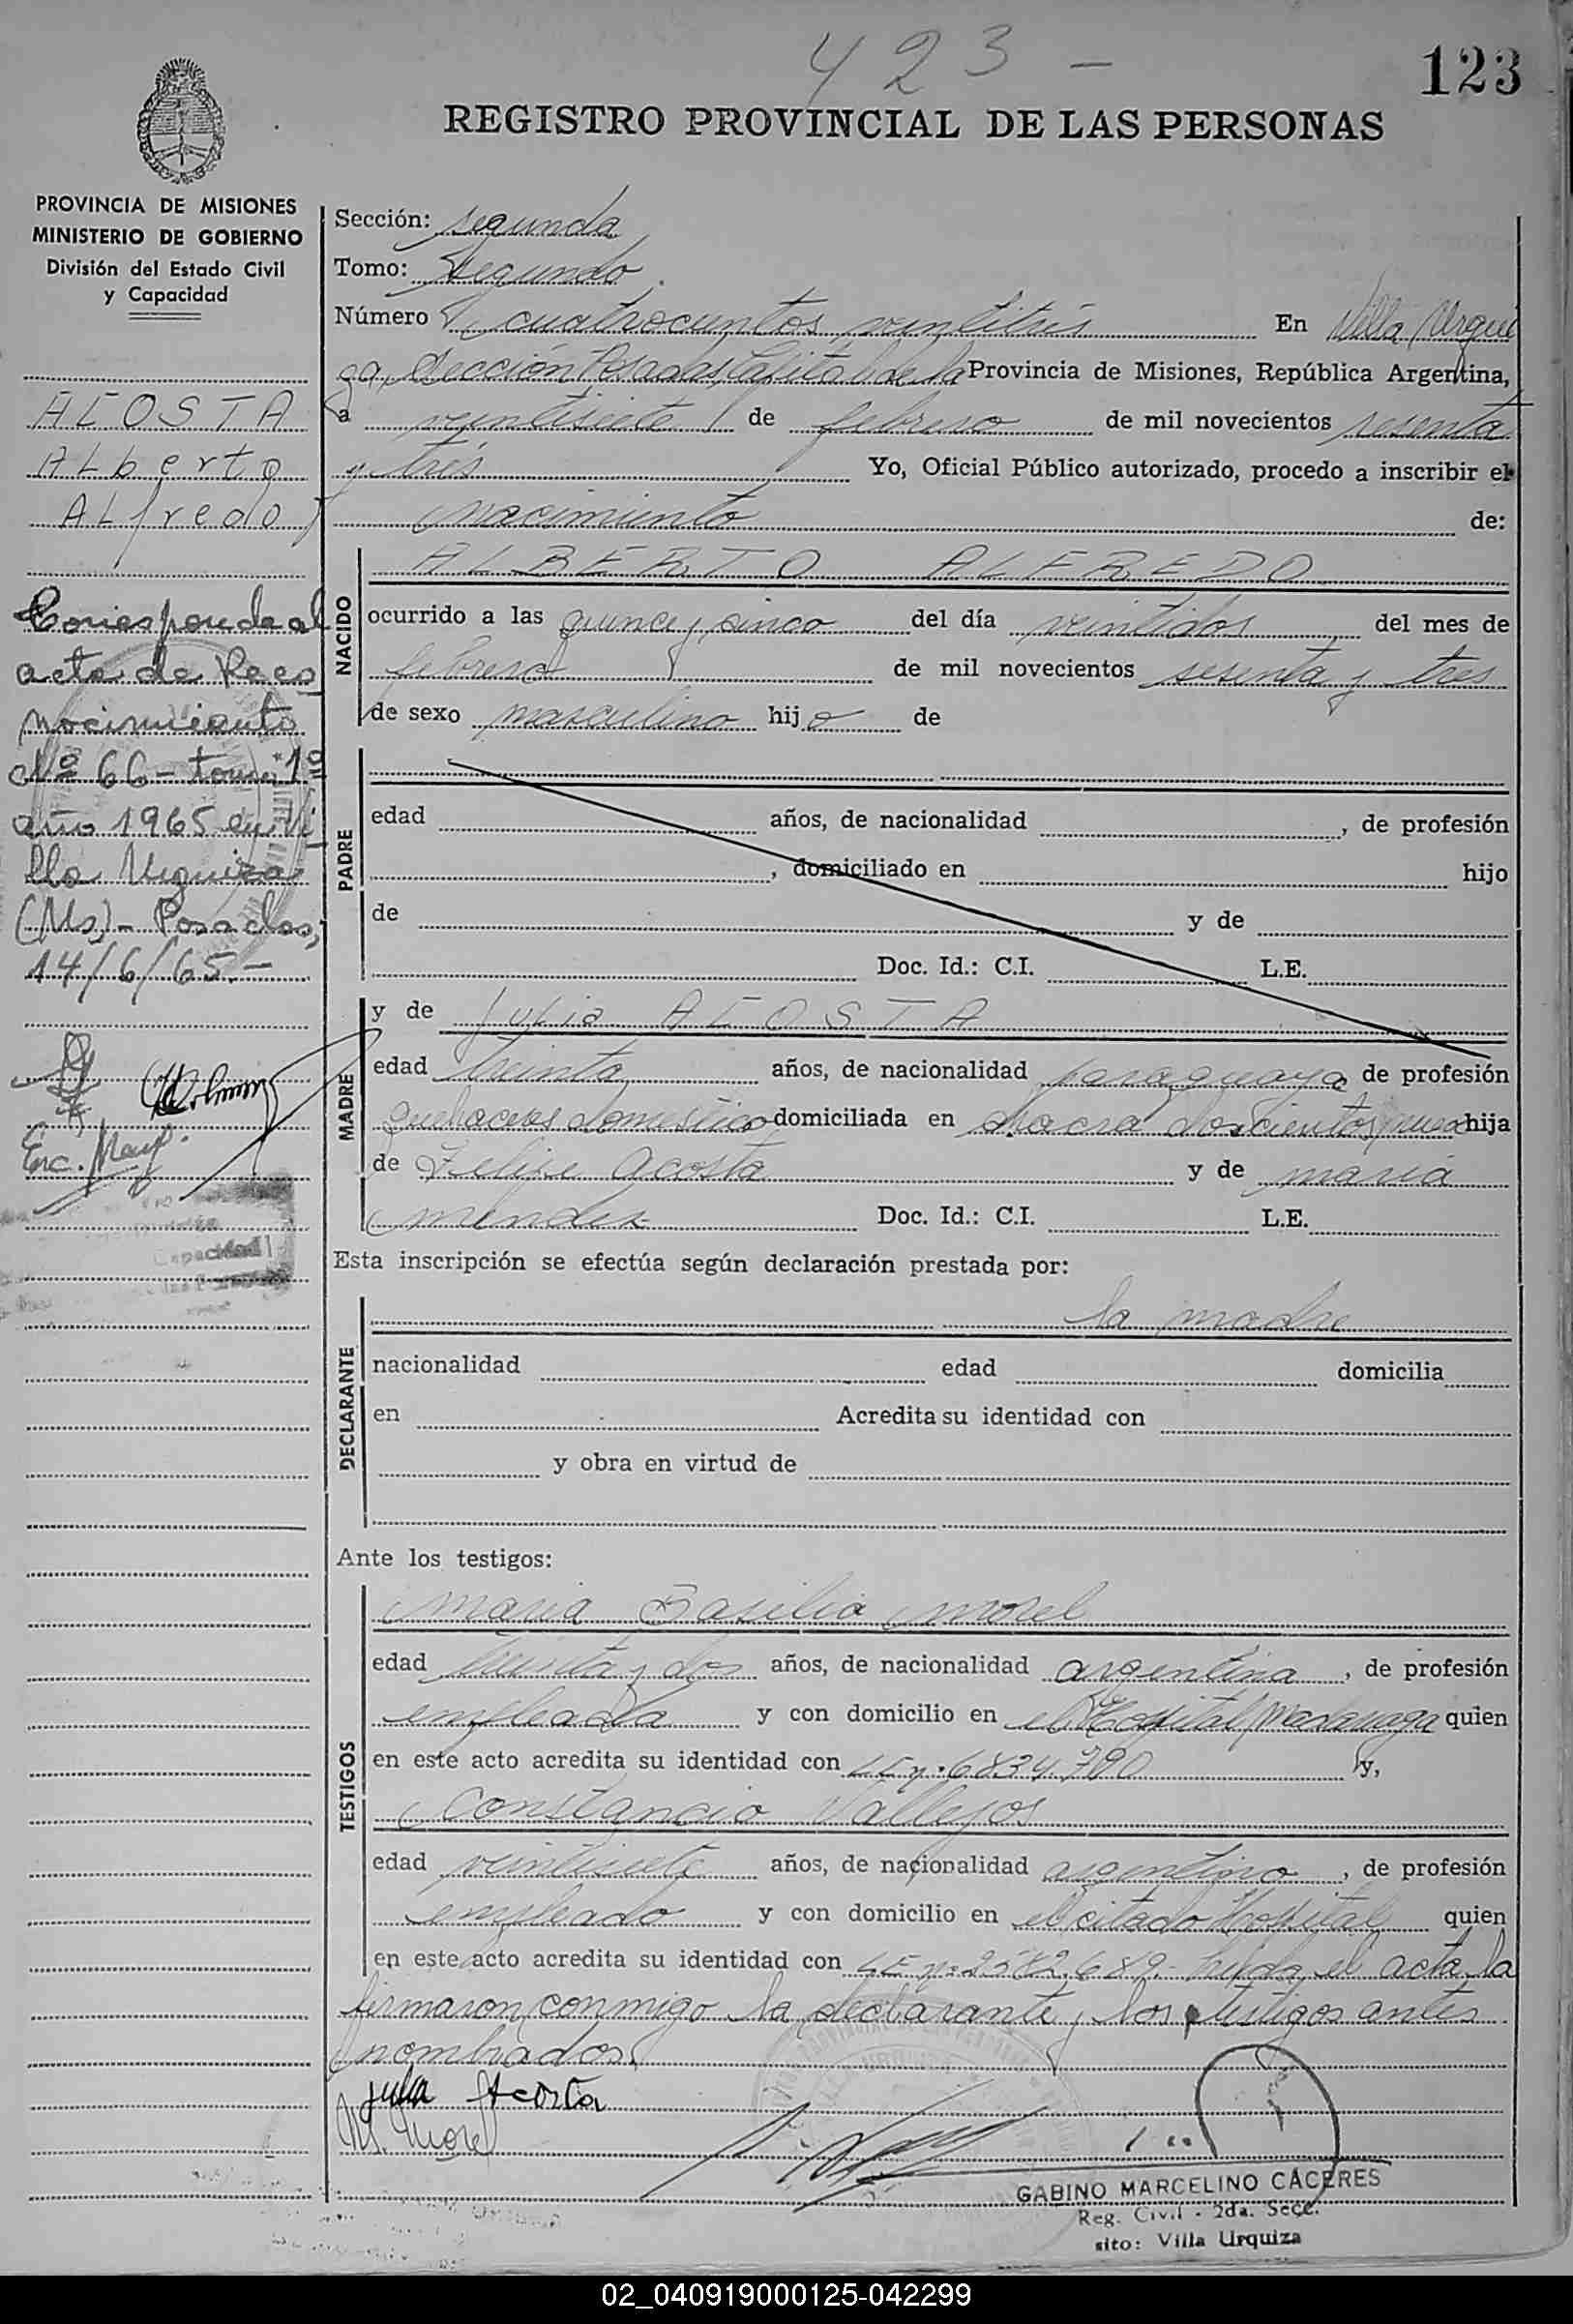 423 -
123
REGISTRO PROVINCIAL DE LAS PERSONAS
PROVINCIA DE MISIONES
MINISTERIO DE GOBIERNO
División del Estado Civil
y Capacidad
ACOSTA
ALberto
ALfredo
Corresponde al
acta de Reco
nocimiento
Nº 66 - tomo 1º
año 1965 en Vi
lla Urquiza
(Ms) - Posadas,
14/6/65.-
Enc.
Capacidad
Sección: segunda
Tomo: segundo
Número cuatrocientos veintitrés En Villa Urqui
za, Sección Posadas, Capital de la Provincia de Misiones, República Argentina,
a veintisiete de febrero de mil novecientos sesenta
y tres Yo, Oficial Público autorizado, procedo a inscribir el
nacimiento de:
NACIDO
ALBERTO ALFREDO
ocurrido a las quince y cinco del día veintidos del mes de
febrero de mil novecientos sesenta y tres
de sexo masculino hijo de
PADRE
edad años, de nacionalidad , de profesión
, domiciliado en hijo
de y de
Doc. Id.: C.I. L.E.
MADRE
y de Julia ACOSTA
edad treinta años, de nacionalidad paraguaya de profesión
quehaceres domestico domiciliada en chacra doscientos hija
de Felipe Acosta y de maria
mendez Doc. Id.: C.I. L.E.
Esta inscripción se efectúa según declaración prestada por:
DECLARANTE
la madre
nacionalidad edad domicilia
en Acredita su identidad con
y obra en virtud de
Ante los testigos:
TESTIGOS
maria Basilia morel
edad treinta y dos años, de nacionalidad argentina , de profesión
empleada y con domicilio en el Hospital Madariaga quien
en este acto acredita su identidad con LC nº 6834.790 y,
Constancio Vallejos
edad veintisiete años, de nacionalidad argentino , de profesión
empleado y con domicilio en el citado Hospital quien
en este acto acredita su identidad con LE nº 2582.689.- leida el acta, la
firmaron conmigo la declarante y los testigos antes
nombrados.
Julia Acosta
M. Morel
GABINO MARCELINO CÁCERES
Reg. Civil - 2da. Secc.
sito: Villa Urquiza
02_040919000125-042299